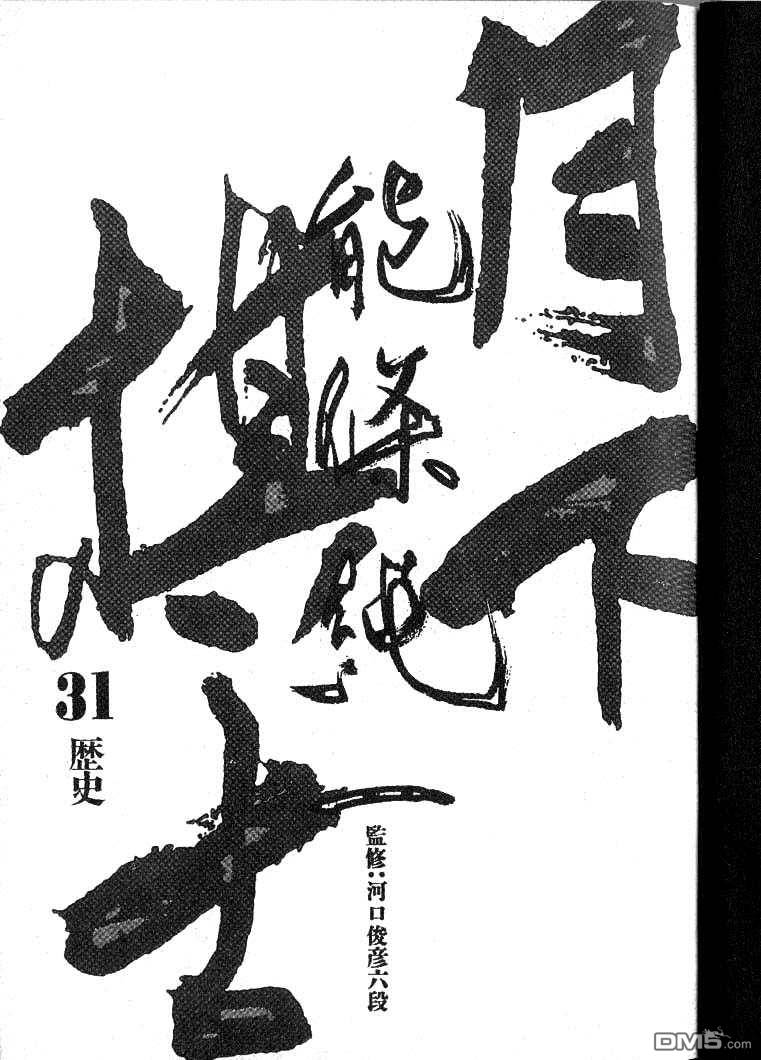 月下
棋士
能條純一
31
歴史
監修:河口俊彦六段
DM5.com